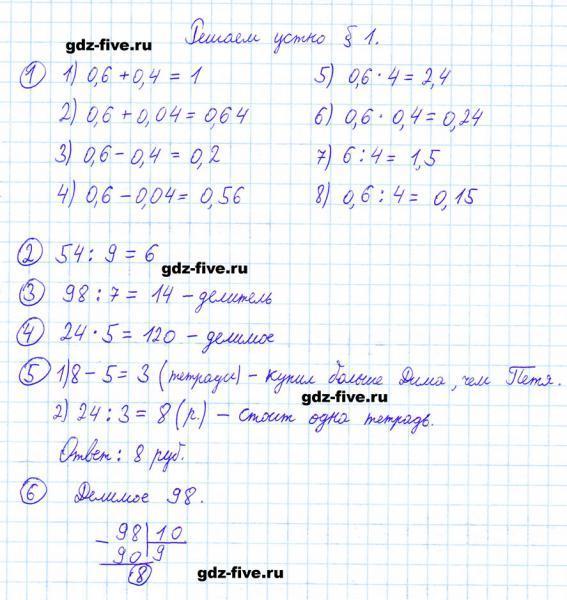 gdz-five.ru
Решаем устно § 1.
1 1) 0,6 + 0,4 = 1
2) 0,6 + 0,04 = 0,64
3) 0,6 - 0,4 = 0,2
4) 0,6 - 0,04 = 0,56
5) 0,6 · 4 = 2,4
6) 0,6 · 0,4 = 0,24
7) 6 : 4 = 1,5
8) 0,6 : 4 = 0,15
2 54 : 9 = 6
gdz-five.ru
3 98 : 7 = 14 - делитель
4 24 · 5 = 120 - делимое
5 1) 8 - 5 = 3 (тетради) - купил больше Дима, чем Петя.
gdz-five.ru
2) 24 : 3 = 8 (р.) - стоит одна тетрадь.
Ответ: 8 руб.
6 Делимое 98.
- 98 | 10
90 | 9
8
gdz-five.ru